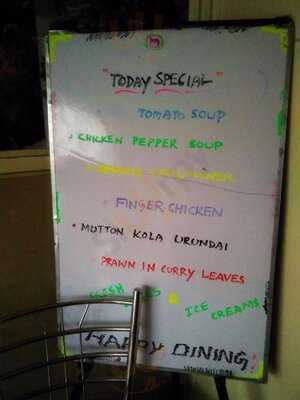 "TODAY SPECIAL"
TOMATO SOUP
CHICKEN PEPPER SOUP
FINGER CHICKEN
MUTTON KOLA URUNDAI
PRAWN IN CURRY LEAVES
FRESH &
ICE CREAMS
HAPPY DINING!